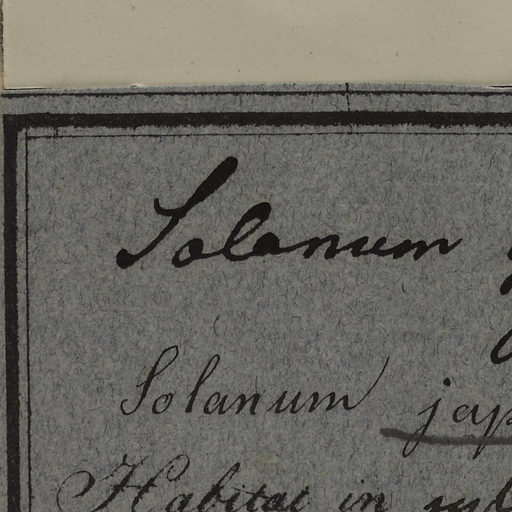 Solanum
Solanum jap
Habitat in syl